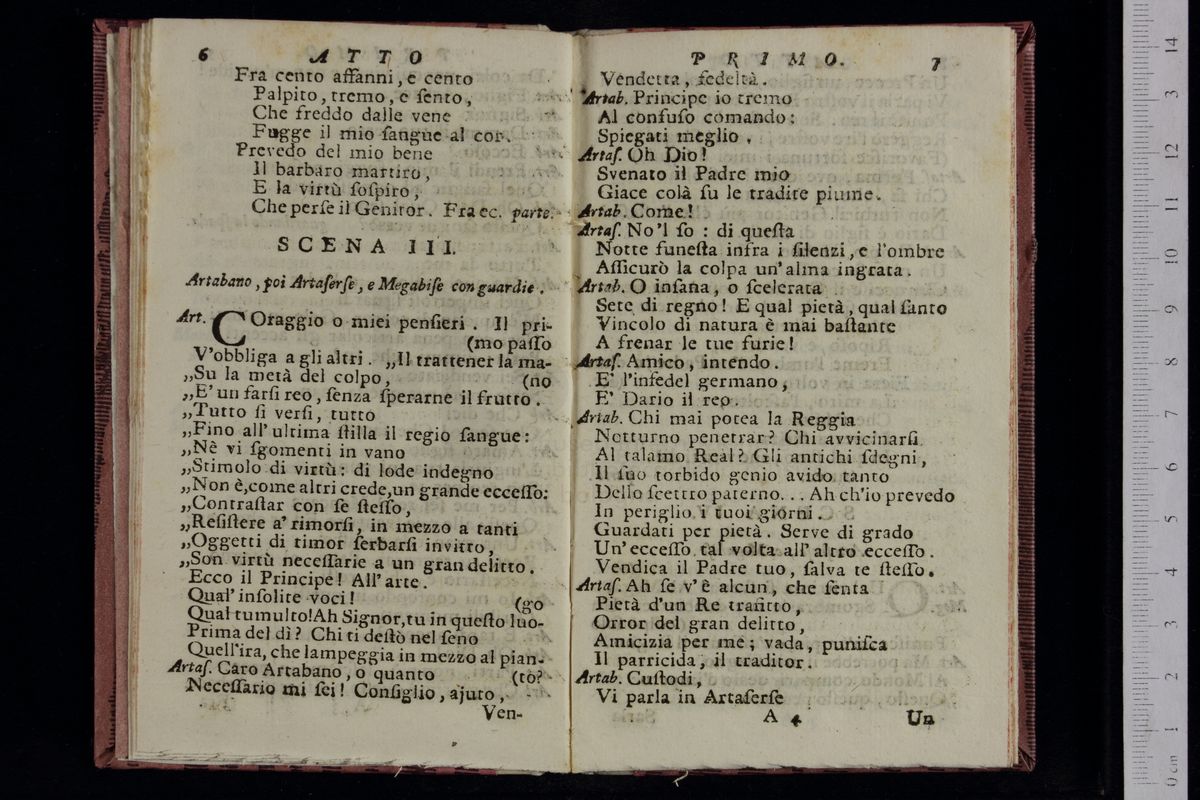 6 ATTO
Fra cento affanni, e cento
Palpito, tremo, e ſento,
Che freddo dalle vene
Fugge il mio ſangue al cor.
Prevedo del mio bene
Il barbaro martiro,
E la virtù ſoſpiro,
Che perſe il Genitor. Fra ec. parte.
SCENA III.
Artabano, poi Artaſerſe, e Megabiſe con guardie.
Art. COraggio o miei penſieri. Il pri-
(mo paſſo
V'obbliga a gli altri. „Il trattener la ma-
„Su la metà del colpo, (no
„E' un farſi reo, ſenza ſperarne il frutto.
„Tutto ſi verſi, tutto
„Fino all' ultima ſtilla il regio ſangue:
„Nè vi ſgomenti in vano
„Stimolo di virtù: di lode indegno
„Non è, come altri crede, un grande ecceſſo:
„Contraſtar con ſe ſteſſo,
„Reſiſtere a' rimorſi, in mezzo a tanti
„Oggetti di timor ſerbarſi invitto,
„Son virtù neceſſarie a un gran delitto.
Ecco il Principe! All' arte.
Qual' inſolite voci! (go
Qual tumulto! Ah Signor, tu in queſto luo-
Prima del dì? Chi ti deſtò nel ſeno
Quell'ira, che lampeggia in mezzo al pian-
Artaſ. Caro Artabano, o quanto (to?
Neceſſario mi ſei! Conſiglio, ajuto,
Ven-
PRIMO. 7
Vendetta, fedeltà.
Artab. Principe io tremo
Al confuſo comando:
Spiegati meglio.
Artaſ. Oh Dio!
Svenato il Padre mio
Giace colà ſu le tradite piume.
Artab. Come!
Artaſ. No'l ſo: di queſta
Notte funeſta infra i ſilenzi, e l'ombre
Aſſicurò la colpa un' alma ingrata.
Artab. O inſana, o ſcelerata
Sete di regno! E qual pietà, qual ſanto
Vincolo di natura è mai baſtante
A frenar le tue furie!
Artaſ. Amico, intendo.
E' l'infedel germano,
E' Dario il reo.
Artab. Chi mai potea la Reggia
Notturno penetrar? Chi avvicinarſi
Al talamo Real? Gli antichi ſdegni,
Il ſuo torbido genio avido tanto
Dello ſcettro paterno... Ah ch'io prevedo
In periglio i tuoi giorni.
Guardati per pietà. Serve di grado
Un' ecceſſo tal volta all' altro ecceſſo.
Vendica il Padre tuo, ſalva te ſteſſo.
Artaſ. Ah ſe v'è alcun, che ſenta
Pietà d'un Re trafitto,
Orror del gran delitto,
Amicizia per me; vada, puniſca
Il parricida, il traditor.
Artab. Cuſtodi,
Vi parla in Artaſerſe
A 4 Un
0 cm 1 2 3 4 5 6 7 8 9 10 11 12 3 14